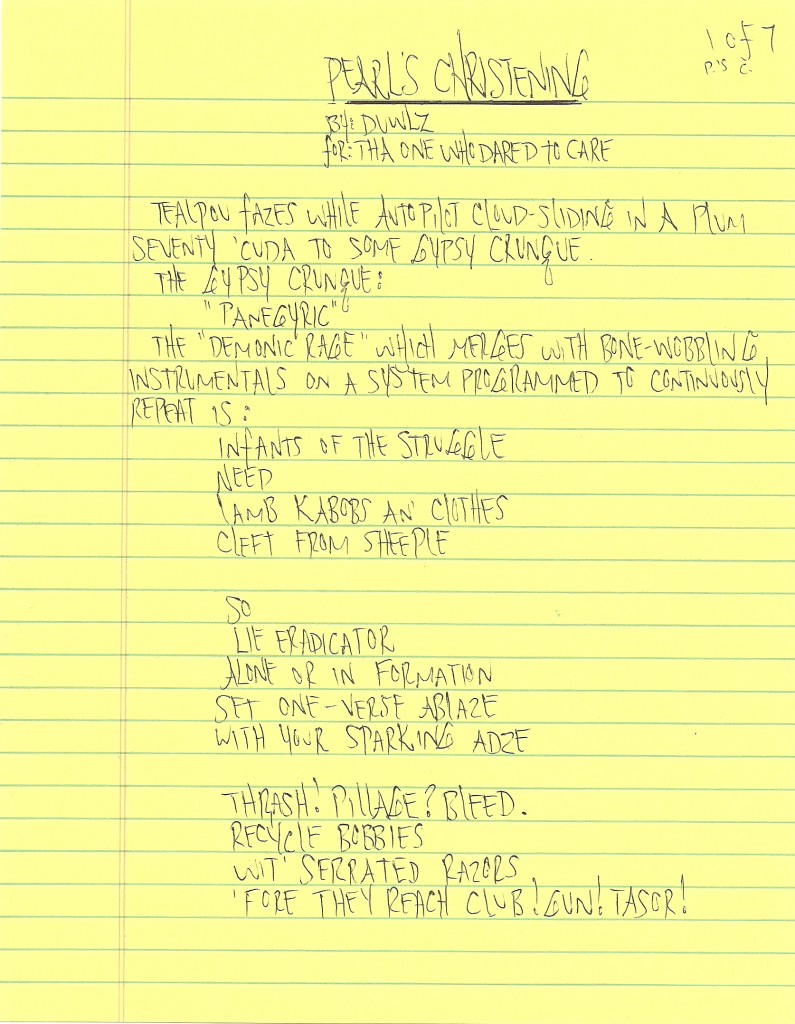 1 of 7
P.'S C.
PEARL'S CHRISTENING
BY: DUWLZ
for: THA ONE WHO DARED TO CARE
TEALPOV FAZES WHILE AUTOPILOT CLOUD-SLIDING IN A PLUM
SEVENTY 'CUDA TO SOME GYPSY CRUNQUE.
THE GYPSY CRUNQUE:
"PANEGYRIC"
THE "DEMONIC RAGE" WHICH MERGES WITH BONE-WOBBLING
INSTRUMENTALS ON A SYSTEM PROGRAMMED TO CONTINUOUSLY
REPEAT IS:
INFANTS OF THE STRUGGLE
NEED
LAMB KABOBS AN' CLOTHES
CLEFT FROM SHEEPLE
SO
LIE ERADICATOR
ALONE OR IN FORMATION
SET ONE-VERSE ABLAZE
WITH YOUR SPARKING ADZE
THRASH! PILLAGE? BLEED.
RECYCLE BOBBIES
WIT' SERRATED RAZORS
'FORE THEY REACH CLUB! GUN! TASOR!